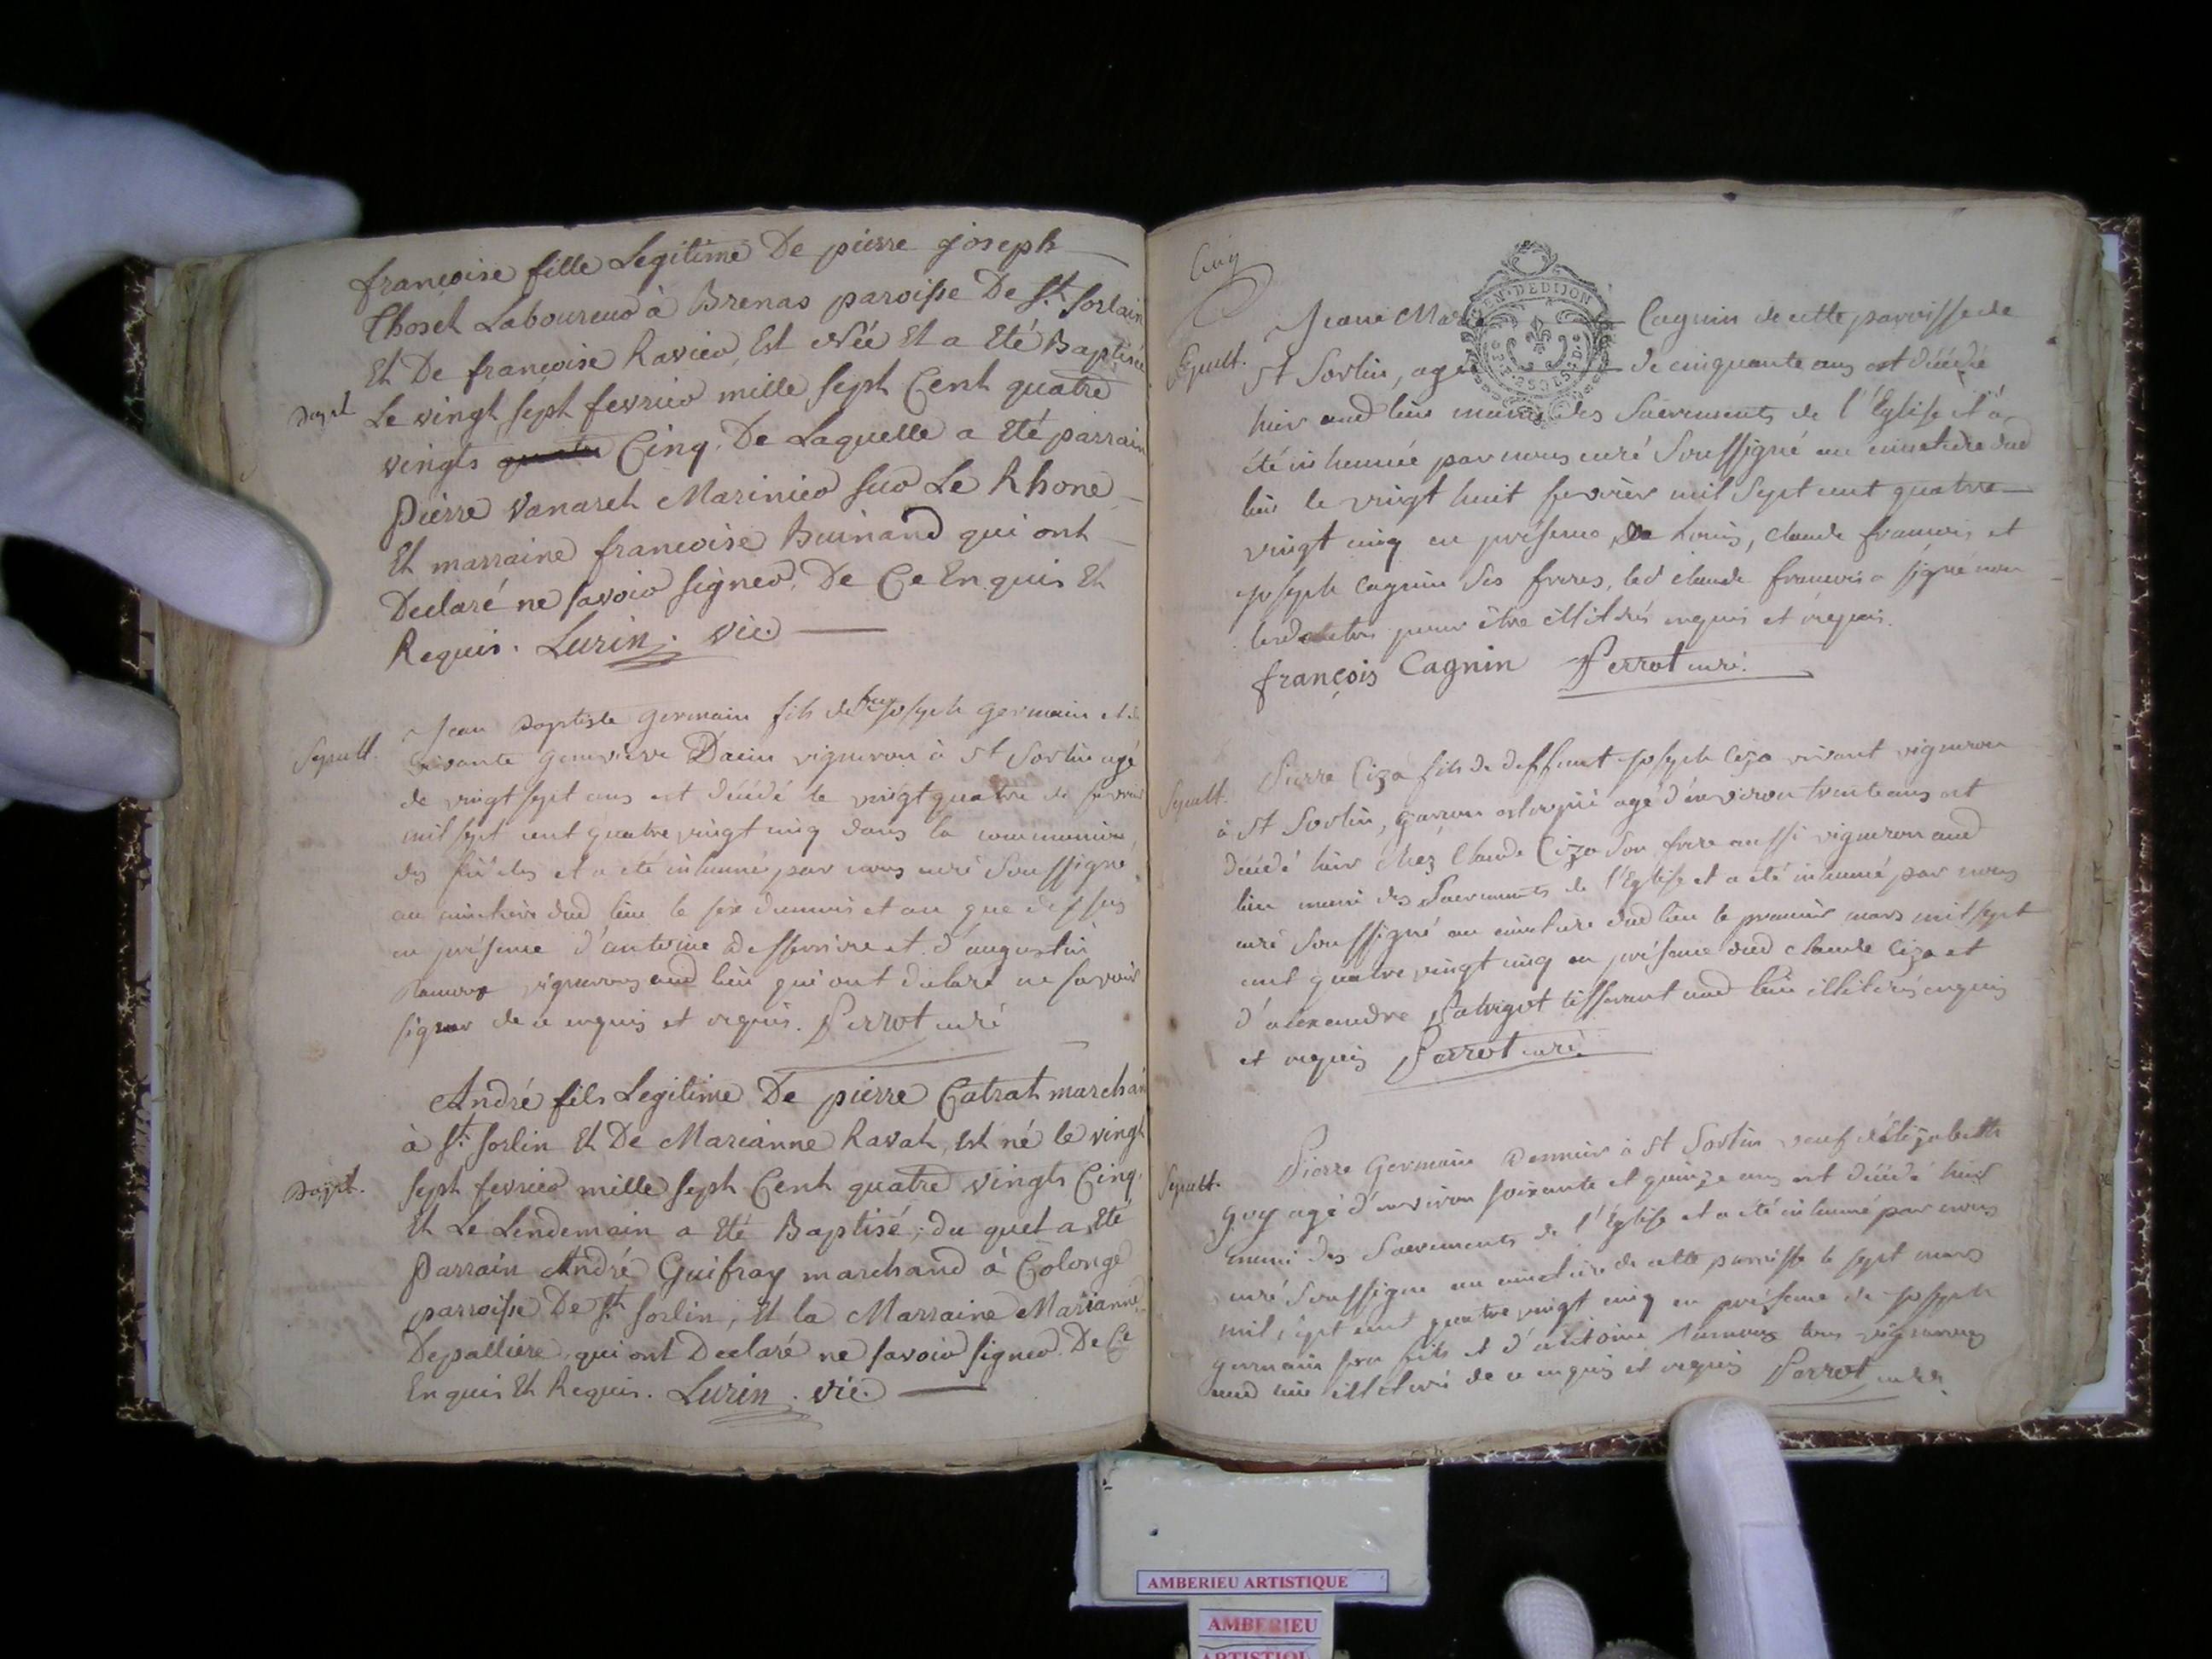 francoise fille Legitime De pierre joseph
Thoset Laboureur à Brenas paroisse De St. Sorlain
Et De francoise Ravier, Est Née Et a Eté Baptisée
Bapt. Le vingt sept fevrier mille sept Cent quatre
vingts Cinq. De Laquelle a Eté parrain
Pierre Vanaret Marinier sur Le Rhone
Et marraine francoise Buinand qui ont
Declaré ne savoir signer. De Ce Enquis Et
Requis. Lurin. vic.
Jean Baptiste germain fils de feu joseph germain et de
Sepult. vivante geneviève vigneron à St Sorlin agé
de vingt sept ans est décédé le vingt quatre de fevrier
mil sept cent quatre vingt cinq dans la communion
des fidèles et a été inhumé par nous curé Soussigné
au cimetiere dud lieu le du mois et an que dessus
en présence d'antoine et d'augustin
Ramoux vignerons aud lieu qui ont declaré ne savoir
signer de ce enquis et requis. Perrot curé
André fils Legitime De pierre Catrat marchand
à St. Sorlin Et De Marianne Ravat, est né le vingt
Bapt. sept fevrier mille sept Cent quatre vingts Cinq.
Et Le Lendemain a Eté Baptisé; du quel a Eté
Parrain André Guifray marchand à Colonge
parroisse De St. Sorlin, Et la Marraine Marianne
Depalliere, qui ont Declaré ne savoir signer. De Ce
Enquis Et Requis. Lurin. vic.
Cinq
EN. DE DIJON
Jeane Marie Cagnin de cette parroisse de
Sepult. St Sorlin, agée de cinquante ans est décédé
hier aud lieu munie des Sacrements de l'Eglise et a
été inhumée par nous curé Soussigné au cimetiere dud
lieu le vingt huit fevrier mil sept cent quatre
vingt cinq en présence de Louis, claude francois et
joseph Cagnin ses freres, led claude francois a signé non
lesd autres pour être illitérés enquis et requis.
françois Cagnin Perrot curé.
Pierre Ciza fils de deffunt joseph Ciza vivant vigneron
Sepult. à St Sorlin, garçon agé d'environ trente ans est
décédé hier chez Claude Ciza son frere aussi vigneron aud
lieu muni des Sacrements de l'Eglise et a été inhumé par nous
curé Soussigné au cimetiere dud lieu le premier mars mil sept
cent quatre vingt cinq en présence dud claude Ciza et
d'alexandre tisserant aud lieu illitérés enquis
et requis Perrot curé.
Pierre Germain à St Sorlin veuf d'Elizabeth
Sepult. Guy agé d'environ soixante et quinze ans est décédé hier
muni des Sacrements de l'Eglise et a été inhumé par nous
curé Soussigné au cimetiere de cette parroisse le sept mars
mil sept cent quatre vingt cinq en présence de joseph
germain son fils et d'antoine Ramoux tous vignerons
aud lieu illitérés de ce enquis et requis Perrot curé.
AMBERIEU ARTISTIQUE
AMBERIEU
ARTISTIQUE